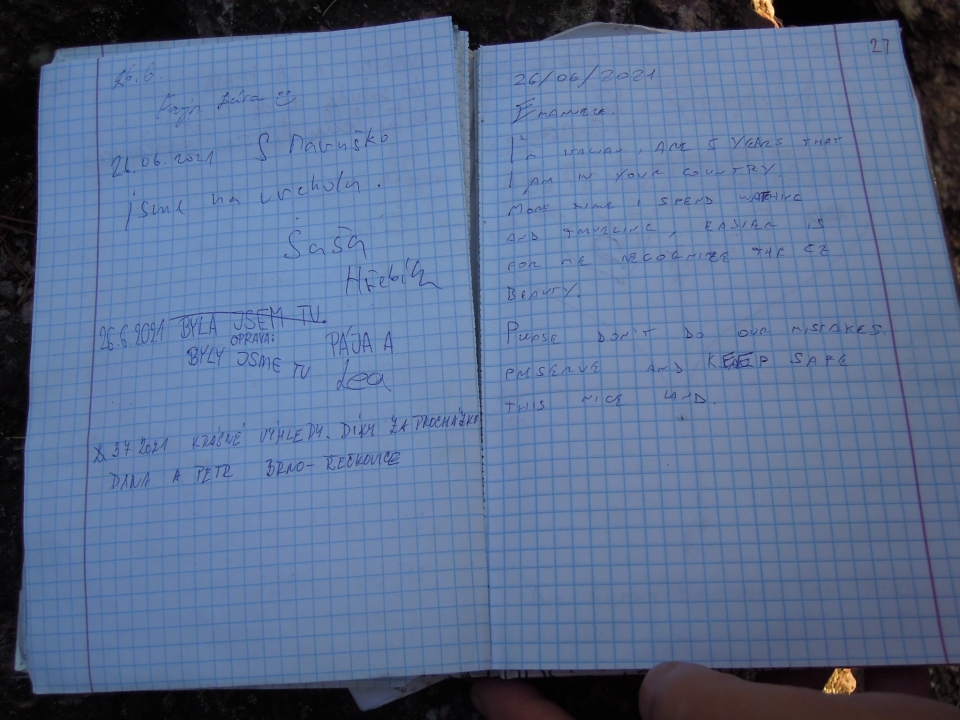 26.6.
Bára
26.06.2021 S Maruško
jsme na vrcholu.
Saša
Hřebíč
26.6.2021 BYLA JSEM TU.
OPRAVA:
BYLY JSME TU PÁJA A
Lea
3.7.2021 KRÁSNÉ VÝHLEDY. DÍKY ZA PROCHÁZKU
DANA A PETR BRNO-ŘEČKOVICE
27
26/06/2021
EMANUELE.
I'M ITALIAN, ARE 5 YEARS THAT
I AM IN YOUR COUNTRY
MORE TIME I SPEND WALKING
AND TRAVELING, EASIER IS
FOR ME RECOGNIZE THE CZ
BEAUTY.
PLEASE DON'T DO OUR MISTAKES.
PRESERVE AND KEEP SAFE
THIS NICE LAND.